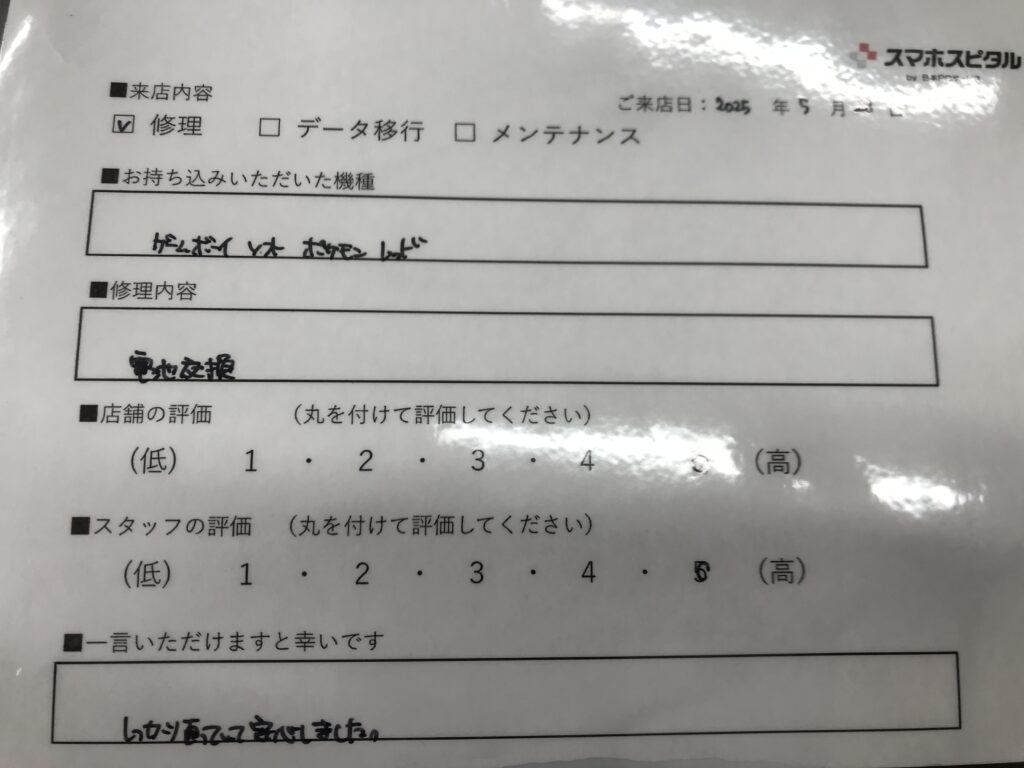 スマホスピタル
■来店内容
ご来店日：2025 年 5 月
☑ 修理 □ データ移行 □ メンテナンス
■お持ち込みいただいた機種
ゲームボーイ ソフト ポケモン レッド
■修理内容
電池交換
■店舗の評価 （丸を付けて評価してください）
（低） 1 ・ 2 ・ 3 ・ 4 5 （高）
■スタッフの評価 （丸を付けて評価してください）
（低） 1 ・ 2 ・ 3 ・ 4 ・ 5 （高）
■一言いただけますと幸いです
しっカリ 直っていて 安心しました。